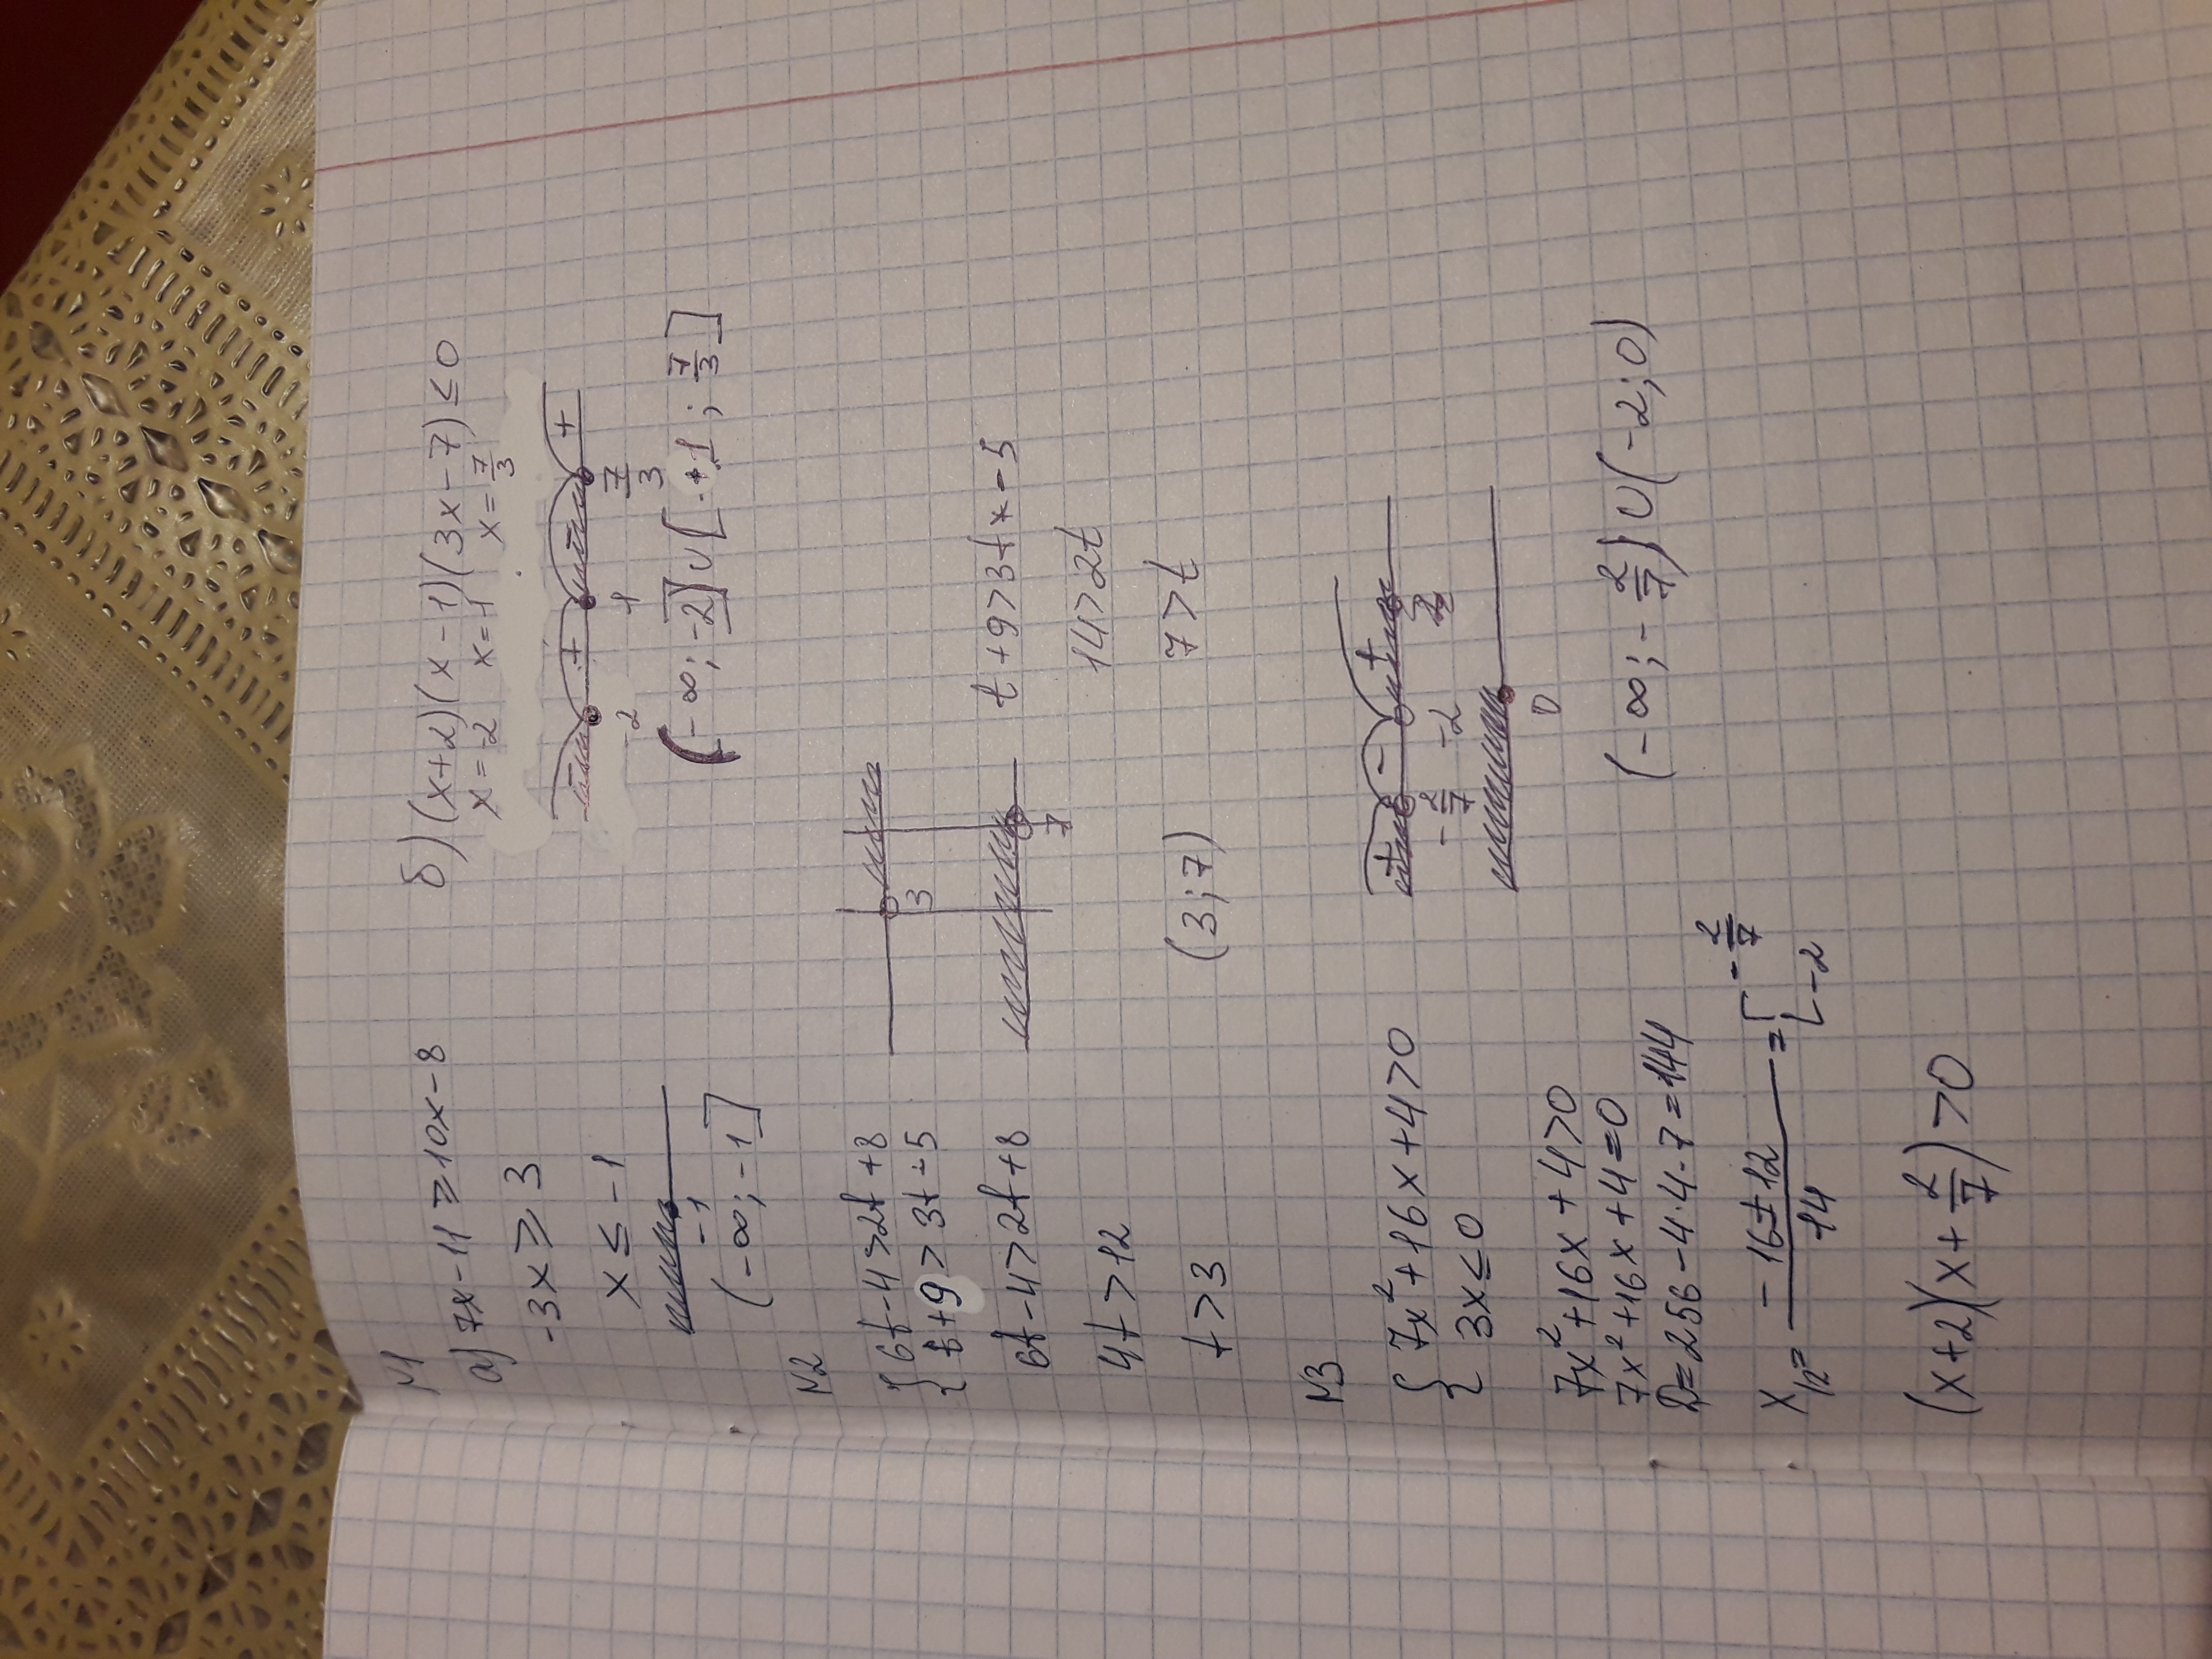 N1
а) 7x-11 ≥ 10x-8
-3x ≥ 3
x ≤ -1
-1
(-∞; -1]
б) (x+2)(x-1)(3x-7) ≤ 0
x=-2 x=1 x=7/3
- + - +
-2 1 7/3
(-∞; -2] ∪ [1; 7/3]
N2
{ 6t-4>2t+8
t+9>3t-5
6t-4>2t+8
4t>12
t>3
3
7
t+9>3t-5
14>2t
7>t
(3;7)
N3
{ 7x²+16x+4>0
3x≤0
7x²+16x+4>0
7x²+16x+4=0
D=256-4·4·7=144
x₁,₂= (-16±12)/14 = [ -2/7
-2
(x+2)(x+2/7)>0
+ - +
-2/7 -2
0
(-∞; -2/7) ∪ (-2; 0)